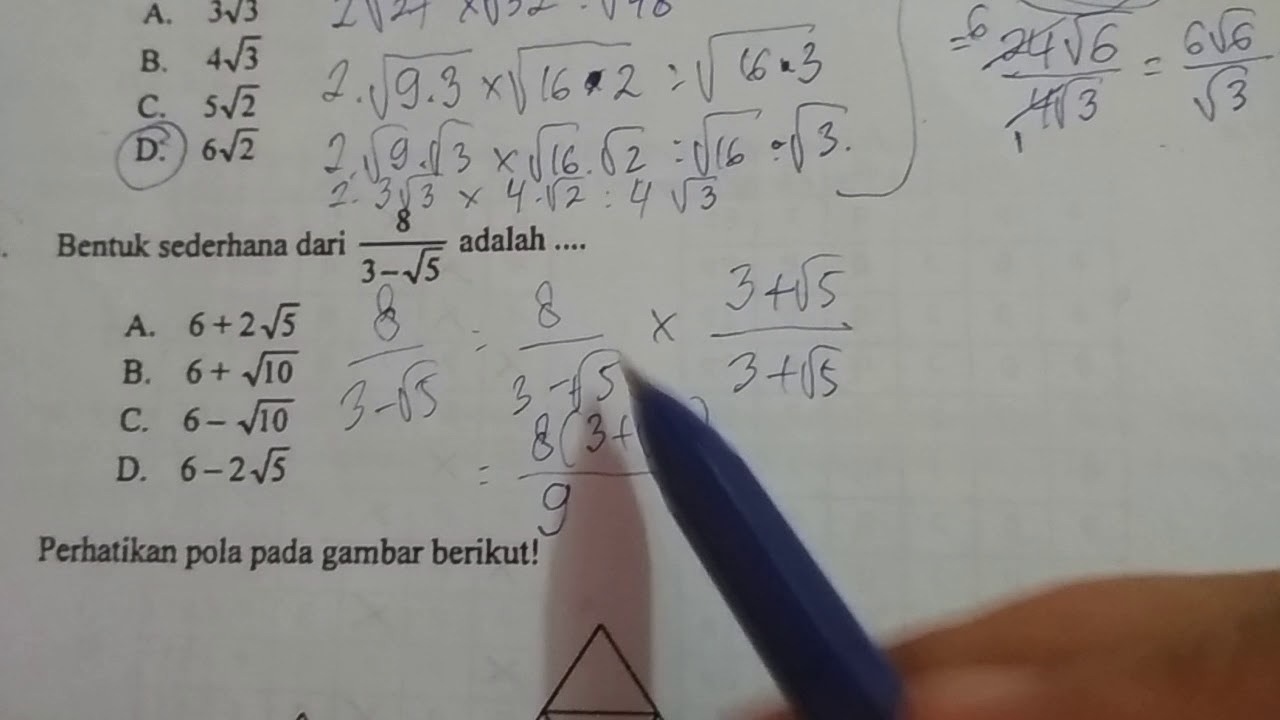 A. 3√3
2√27 × √32 : √48
B. 4√3
2.√9.3 × √16.2 : √16.3
C. 5√2
D. 6√2
2.√9.√3 × √16.√2 : √16.√3.
2. 3√3 × 4.√2 : 4√3
= 6 24√6 / 1 4√3 = 6√6 / √3
Bentuk sederhana dari 8/(3−√5) adalah ....
A. 6+2√5
B. 6+√10
C. 6−√10
D. 6−2√5
8/(3−√5) = 8/(3−√5) × (3+√5)/(3+√5)
= 8(3+ ) / 9
Perhatikan pola pada gambar berikut!